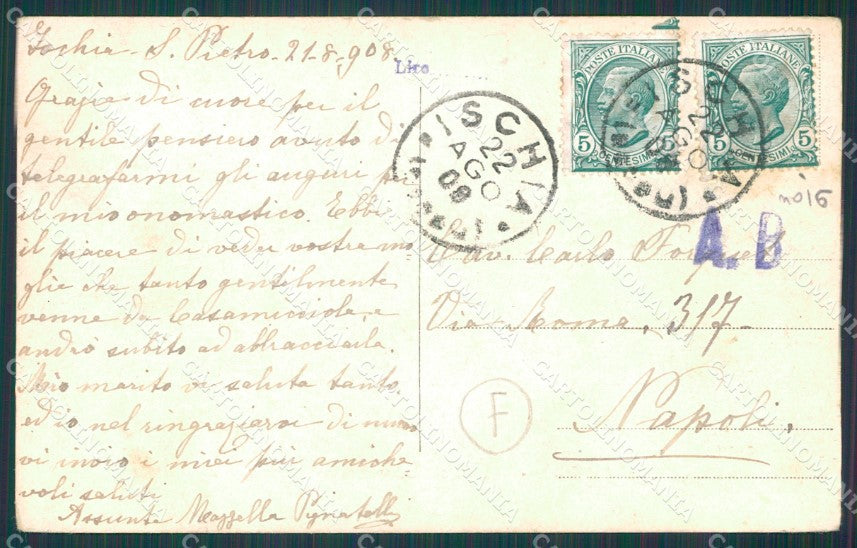 Ischia - S. Pietro - 21-8-908
Grazie di cuore per il
gentile pensiero avuto di
telegrafarmi gli auguri pel
il mio onomastico. Ebbi
il piacere di veder vostra mo
glie che tanto gentilmente
venne da Casamicciola, e
andrò subito ad abbracciarla.
Mio marito vi saluta tanto
ed io nel ringraziarvi di nuovo
vi invio i miei più amiche
voli saluti
Assunta Mazzella Pignatelli
Lire
POSTE ITALIANE
5 CENTESIMI 5
POSTE ITALIANE
5 CENTESIMI 5
ISCHIA
22
AGO
08
ISCHIA
22
AGO
A. B
Cav. Carlo
Via Roma, 317
Napoli.
F
CARTOLINOMANIA